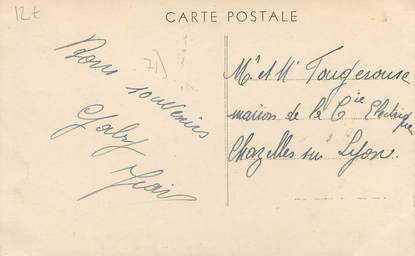 12t
CARTE POSTALE
71)
Bons
souvenirs
Gaby
Mr et Mme Fougerouse
maison de la Cie Electrique
Chazelles sur Lyon.